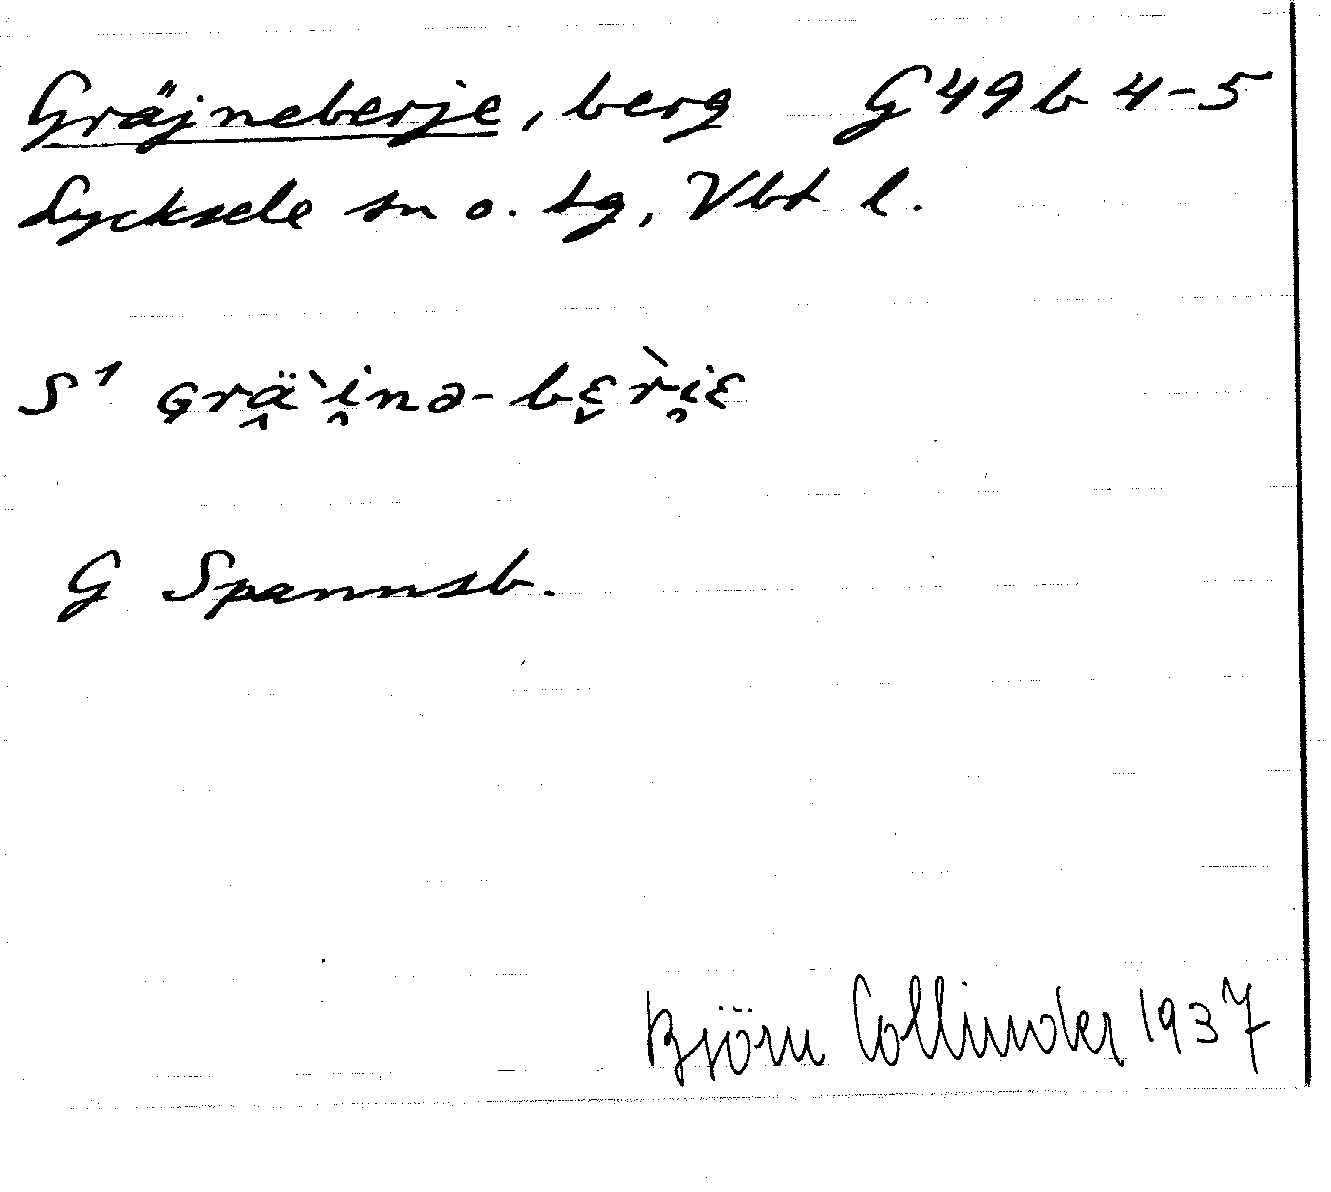 Gräjneberje, berg G 49 b 4-5
Lycksele sn o. tg, Vbt l.
S¹ Grä̭ˋi̯nə-bɛ̬r̀i̯ɛ
G Spannsb.
Björn Collinder 1937